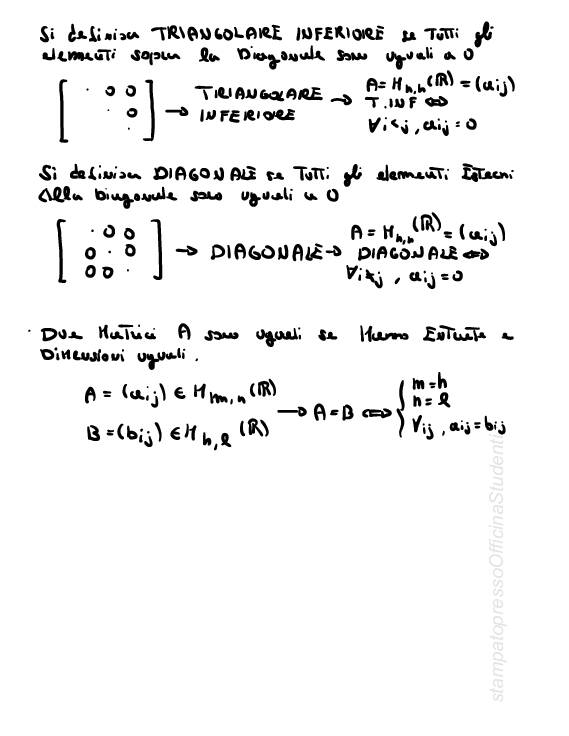 Si definisce TRIANGOLARE INFERIORE se Tutti gli
elementi sopra la Diagonale sono uguali a 0
[ · 0 0 → TRIANGOLARE → A= M n,n (ℝ) = (aij)
· 0 INFERIORE T.INF ⇔
· ] ∀i<j , aij = 0
Si definisce DIAGONALE se Tutti gli elementi Esterni
Alla Diagonale sono uguali a 0
[ · 0 0 A = M n,n (ℝ) = (aij)
0 · 0 → DIAGONALE → DIAGONALE ⇔
0 0 · ] ∀i≠j , aij = 0
· Due Matrici A sono uguali se Hanno Entrate e
Dimensioni uguali.
A = (aij) ∈ M m,n (ℝ) → A = B ⇔ { m=h
n=l
B = (bij) ∈ M h,l (ℝ) ∀ij , aij = bij
stampatopressoOfficinaStudenti